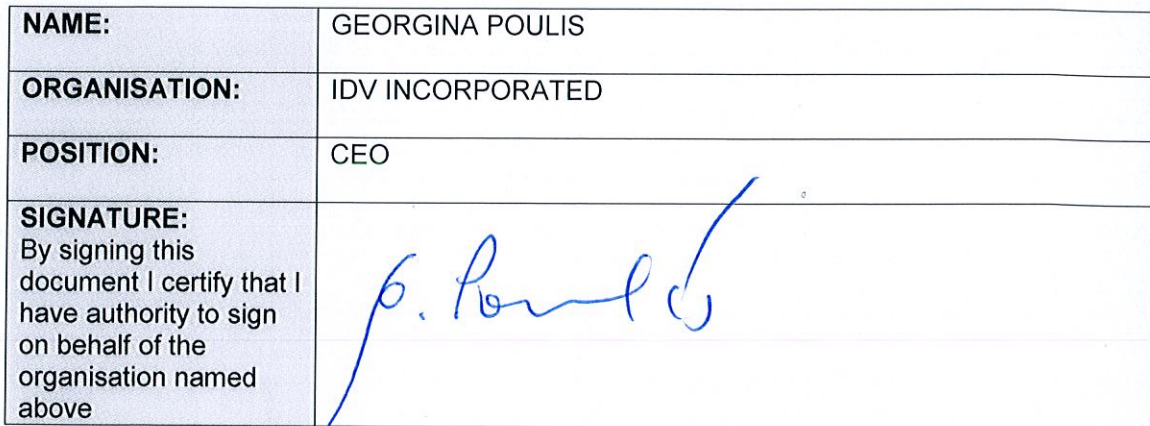 NAME: GEORGINA POULIS
ORGANISATION: IDV INCORPORATED
POSITION: CEO
SIGNATURE:
By signing this
document I certify that I
have authority to sign
on behalf of the
organisation named
above
G. Poulis